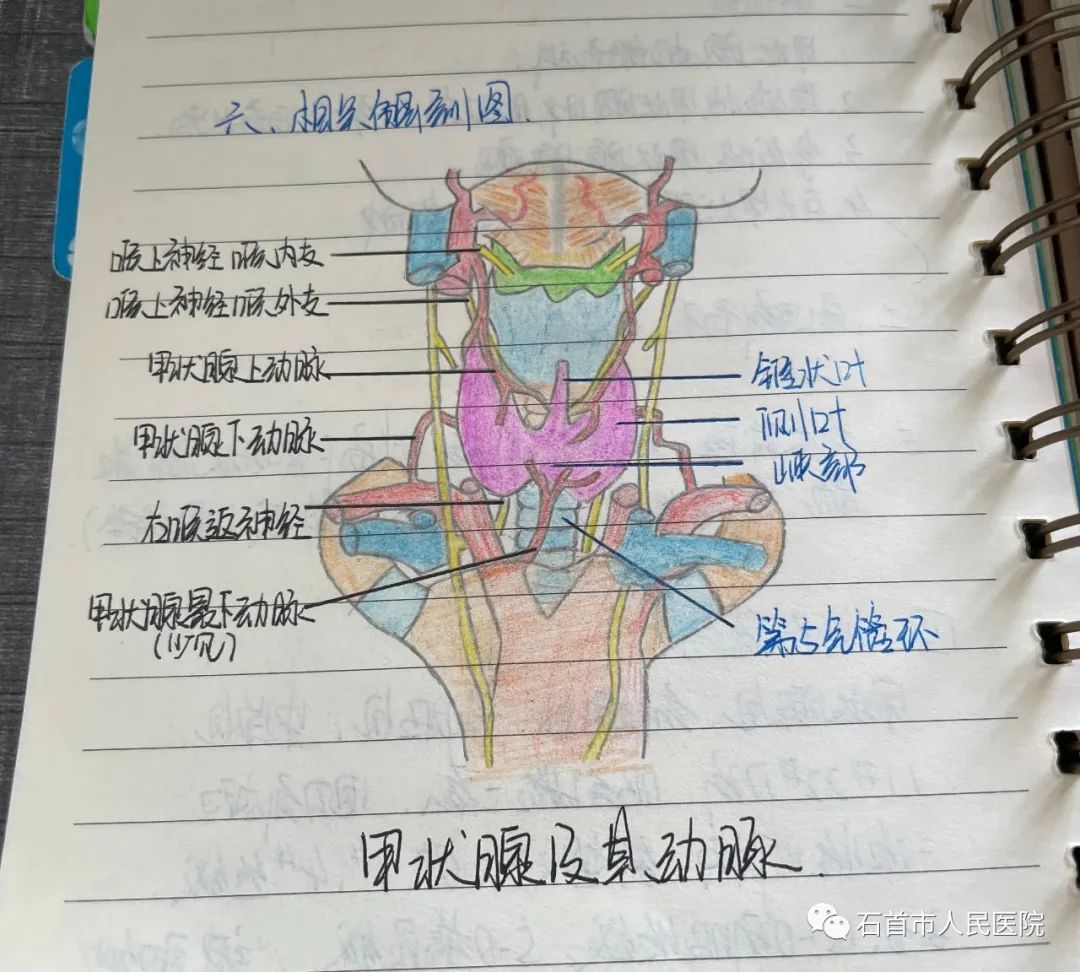 六、相关解剖图.
喉上神经喉内支
喉上神经喉外支
甲状腺上动脉
甲状腺下动脉
右喉返神经
甲状腺最下动脉
(少见)
锥状叶
侧叶
峡部
第5气管环
甲状腺及其动脉.
石首市人民医院